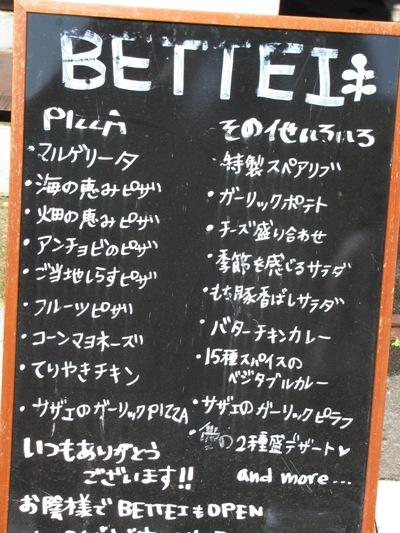 BETTEI
PIZZA
・マルゲリータ
・海の恵みピザ
・畑の恵みピザ
・アンチョビのピザ
・ご当地しらすピザ
・フルーツピザ
・コーンマヨネーズ
・てりやきチキン
・サザエのガーリックPIZZA
いつもありがとう
ございます!!
お陰様でBETTEIもOPEN
その他いろいろ
・特製スペアリブ
・ガーリックポテト
・チーズ盛り合わせ
・季節を感じるサラダ
・もち豚香ばしサラダ
・バターチキンカレー
・15種スパイスの
ベジタブルカレー
・サザエのガーリックピラフ
の2種盛デザート♥
and more...